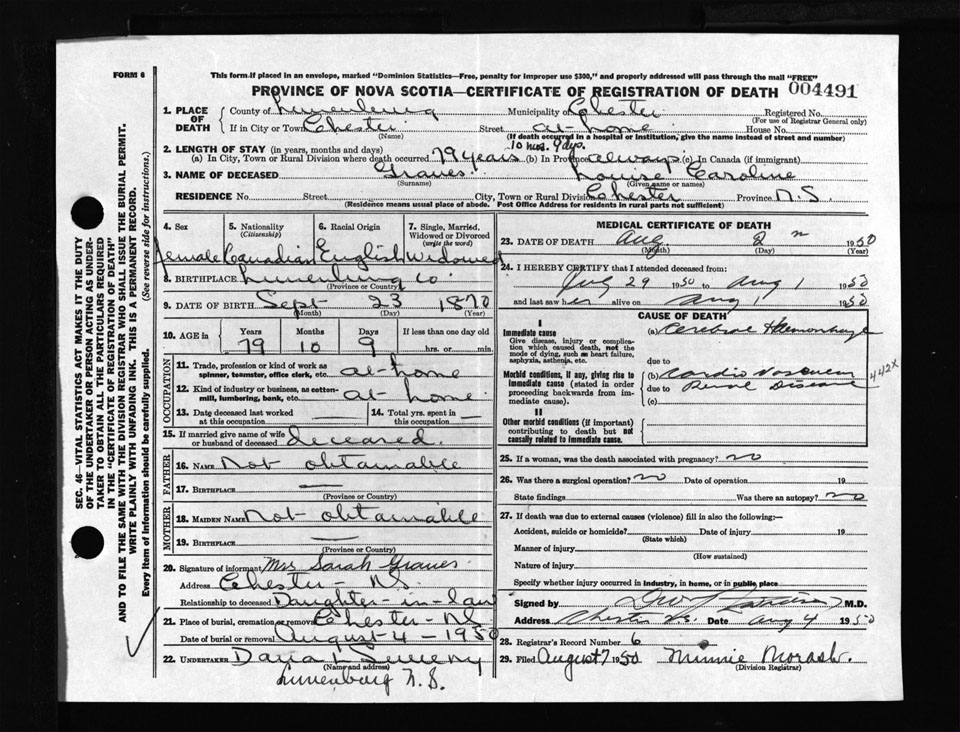 FORM 6
This form if placed in an envelope, marked "Dominion Statistics—Free, penalty for improper use $300," and properly addressed will pass through the mail "FREE"
PROVINCE OF NOVA SCOTIA—CERTIFICATE OF REGISTRATION OF DEATH 004491
1. PLACE OF DEATH County of Lunenburg Municipality of Chester Registered No.
(For use of Registrar General only)
If in City or Town Chester Street at-home House No.
(Name) (If death occurred in a hospital or institution, give the name instead of street and number)
2. LENGTH OF STAY (in years, months and days) 10 mos. 9 dys.
(a) In City, Town or Rural Division where death occurred 79 years (b) In Province always (c) In Canada (if immigrant)
3. NAME OF DECEASED Graves Louise Caroline
(Surname) (Given name or names)
RESIDENCE No. Street City, Town or Rural Division Chester Province N.S
(Residence means usual place of abode. Post Office Address for residents in rural parts not sufficient)
SEC. 46—VITAL STATISTICS ACT MAKES IT THE DUTY
OF THE UNDERTAKER OR PERSON ACTING AS UNDER-
TAKER TO OBTAIN ALL THE PARTICULARS REQUIRED
IN THE "CERTIFICATE OF REGISTRATION OF DEATH"
AND TO FILE THE SAME WITH THE DIVISION REGISTRAR WHO SHALL ISSUE THE BURIAL PERMIT.
WRITE PLAINLY WITH UNFADING INK. THIS IS A PERMANENT RECORD.
Every item of Information should be carefully supplied. (See reverse side for instructions.)
4. Sex 5. Nationality (Citizenship) 6. Racial Origin 7. Single, Married, Widowed or Divorced (write the word)
Female Canadian English Widowed
8. BIRTHPLACE Lunenburg Co.
(Province or Country)
9. DATE OF BIRTH Sept 23 1870
(Month) (Day) (Year)
10. AGE in Years Months Days If less than one day old
79 10 9 hrs. or min.
OCCUPATION
11. Trade, profession or kind of work as spinner, teamster, office clerk, etc. at-home
12. Kind of industry or business, as cotton-mill, lumbering, bank, etc. at home
13. Date deceased last worked at this occupation — 14. Total yrs. spent in this occupation —
15. If married give name of wife or husband of deceased deceased.
FATHER
16. NAME Not obtainable
17. BIRTHPLACE —
(Province or Country)
MOTHER
18. MAIDEN NAME Not obtainable
19. BIRTHPLACE —
(Province or Country)
20. Signature of informant Mrs Sarah Graves
Address Chester - NS
Relationship to deceased Daughter-in-law
21. Place of burial, cremation or removal Chester-NS
Date of burial or removal August-4-1950
22. UNDERTAKER
(Name and address)
Lunenburg N.S.
MEDICAL CERTIFICATE OF DEATH
23. DATE OF DEATH Aug 2 1950
(Month) (Day) (Year)
24. I HEREBY CERTIFY that I attended deceased from:
July 29 1950 to Aug 1 1950
and last saw her alive on Aug 1 1950
CAUSE OF DEATH
I
Immediate cause (a) Cerebral Hemorrhage
Give disease, injury or complication which caused death, not the mode of dying, such as heart failure, asphyxia, asthenia, etc.
due to
Morbid conditions, if any, giving rise to immediate cause (stated in order proceeding backwards from immediate cause).
(b) Cardio Vascular
due to Renal Disease
(c)
442X
II
Other morbid conditions (if important) contributing to death but not causally related to immediate cause.
25. If a woman, was the death associated with pregnancy? no
26. Was there a surgical operation? no Date of operation 19
State findings Was there an autopsy? no
27. If death was due to external causes (violence) fill in also the following:—
Accident, suicide or homicide? Date of injury 19
(State which)
Manner of injury
(How sustained)
Nature of injury
Specify whether injury occurred in industry, in home, or in public place
Signed by M.D.
Address Chester N.S. Date Aug 4 1950
28. Registrar's Record Number 6
29. Filed August 7 1950 Minnie Morash.
(Division Registrar)